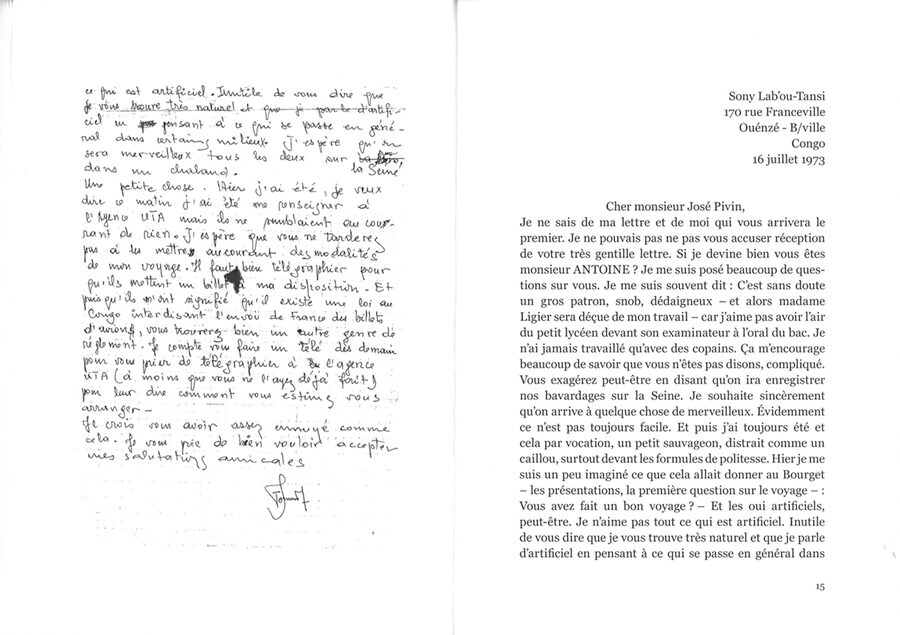 ce qui est artificiel. Inutile de vous dire que
je vous trouve très naturel et que je parle d'artifi-
ciel en pensant à ce qui se passe en géné-
ral dans certains milieux. J'espère qu'on
sera merveilleux tous les deux sur
la Seine
dans un chaland.
Une petite chose. Hier j'ai été, je veux
dire ce matin j'ai été me renseigner à
l'Agence UTA mais ils ne semblaient au cou-
rant de rien. J'espère que vous ne tarderez
pas à les mettre au courant des modalités
de mon voyage. Il faut bien télégraphier pour
qu'ils mettent un billet à ma disposition. Et
puisqu'ils m'ont signifié qu'il existe une loi au
Congo interdisant l'envoi de France des billets
d'avions, vous trouverez bien un autre genre de
réglement. Je compte vous faire un télé dès demain
pour vous prier de télégraphier à l'agence
UTA (à moins que vous ne l'ayez déjà fait)
pour leur dire comment vous estimez vous
arranger —
Je crois vous avoir assez ennuyé comme
cela. Je vous prie de bien vouloir accepter
mes salutations amicales
Sony Lab'ou-Tansi
170 rue Franceville
Ouénzé - B/ville
Congo
16 juillet 1973
Cher monsieur José Pivin,
Je ne sais de ma lettre et de moi qui vous arrivera le
premier. Je ne pouvais pas ne pas vous accuser réception
de votre très gentille lettre. Si je devine bien vous êtes
monsieur ANTOINE ? Je me suis posé beaucoup de ques-
tions sur vous. Je me suis souvent dit : C'est sans doute
un gros patron, snob, dédaigneux – et alors madame
Ligier sera déçue de mon travail – car j'aime pas avoir l'air
du petit lycéen devant son examinateur à l'oral du bac. Je
n'ai jamais travaillé qu'avec des copains. Ça m'encourage
beaucoup de savoir que vous n'êtes pas disons, compliqué.
Vous exagérez peut-être en disant qu'on ira enregistrer
nos bavardages sur la Seine. Je souhaite sincèrement
qu'on arrive à quelque chose de merveilleux. Évidemment
ce n'est pas toujours facile. Et puis j'ai toujours été et
cela par vocation, un petit sauvageon, distrait comme un
caillou, surtout devant les formules de politesse. Hier je me
suis un peu imaginé ce que cela allait donner au Bourget
– les présentations, la première question sur le voyage – :
Vous avez fait un bon voyage ? – Et les oui artificiels,
peut-être. Je n'aime pas tout ce qui est artificiel. Inutile
de vous dire que je vous trouve très naturel et que je parle
d'artificiel en pensant à ce qui se passe en général dans
15